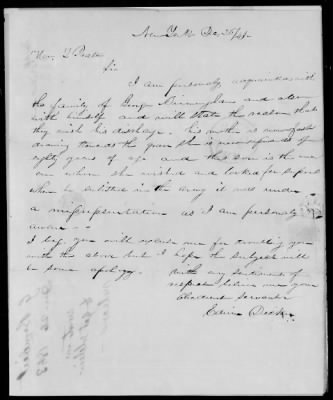 New York Dec 26/41
Hon. T
Sir
I am personaly acquainted with
the family of George and also
with himself and will state the reason that
they wish his discharge. his mother is now fast
drawing towards the grave She is now upwards of
eighty years of age and this son is the one
one whom she wished and looked for support
when he enlisted in the army it was under
a misrepresentation as I am personaly
aware.
I beg you will excuse me for troubling you
with the above but I hope the subject will
be some apology.
With any sentiments of
respect believe me your
Obedient Servant
Edwin